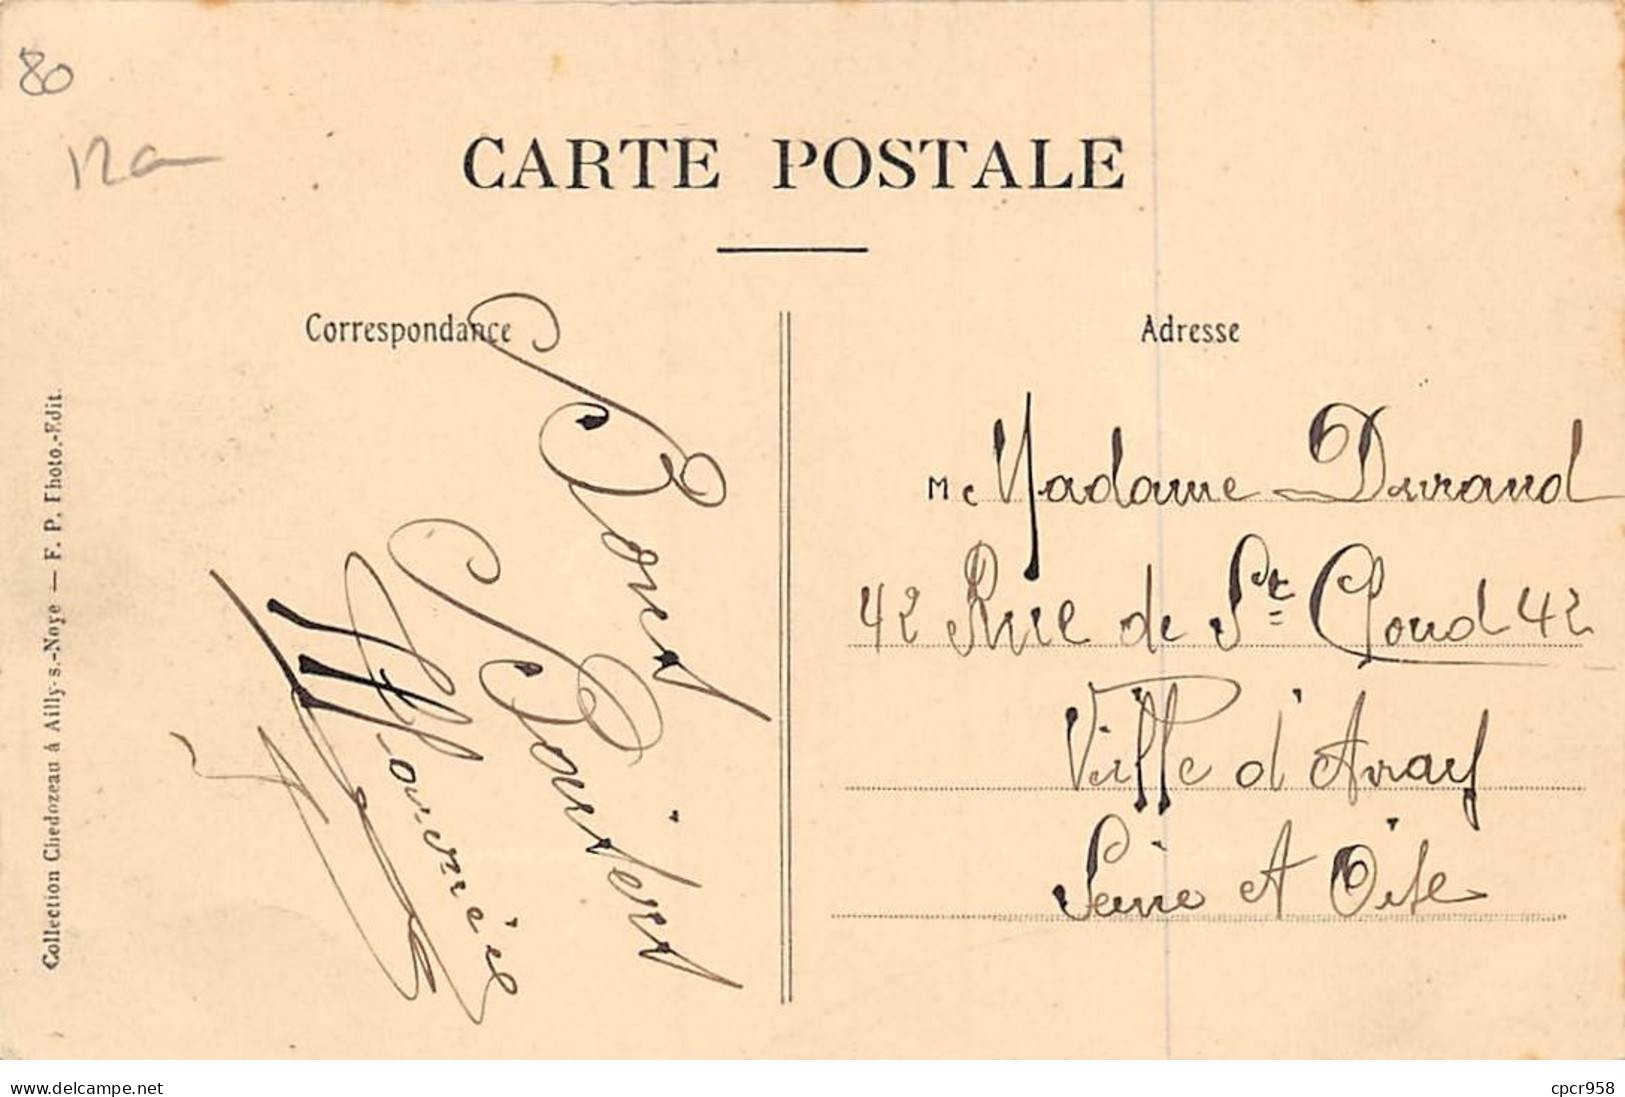 80
CARTE POSTALE
Correspondance
Bons
Baisers
Adresse
M
Madame Durand
42 Rue de St Cloud 42
Ville d'Avray
Seine et Oise
Collection Chedozeau à Ailly-s.-Noye — F. P. Photo.-Edit.
www.delcampe.net
cpcr958